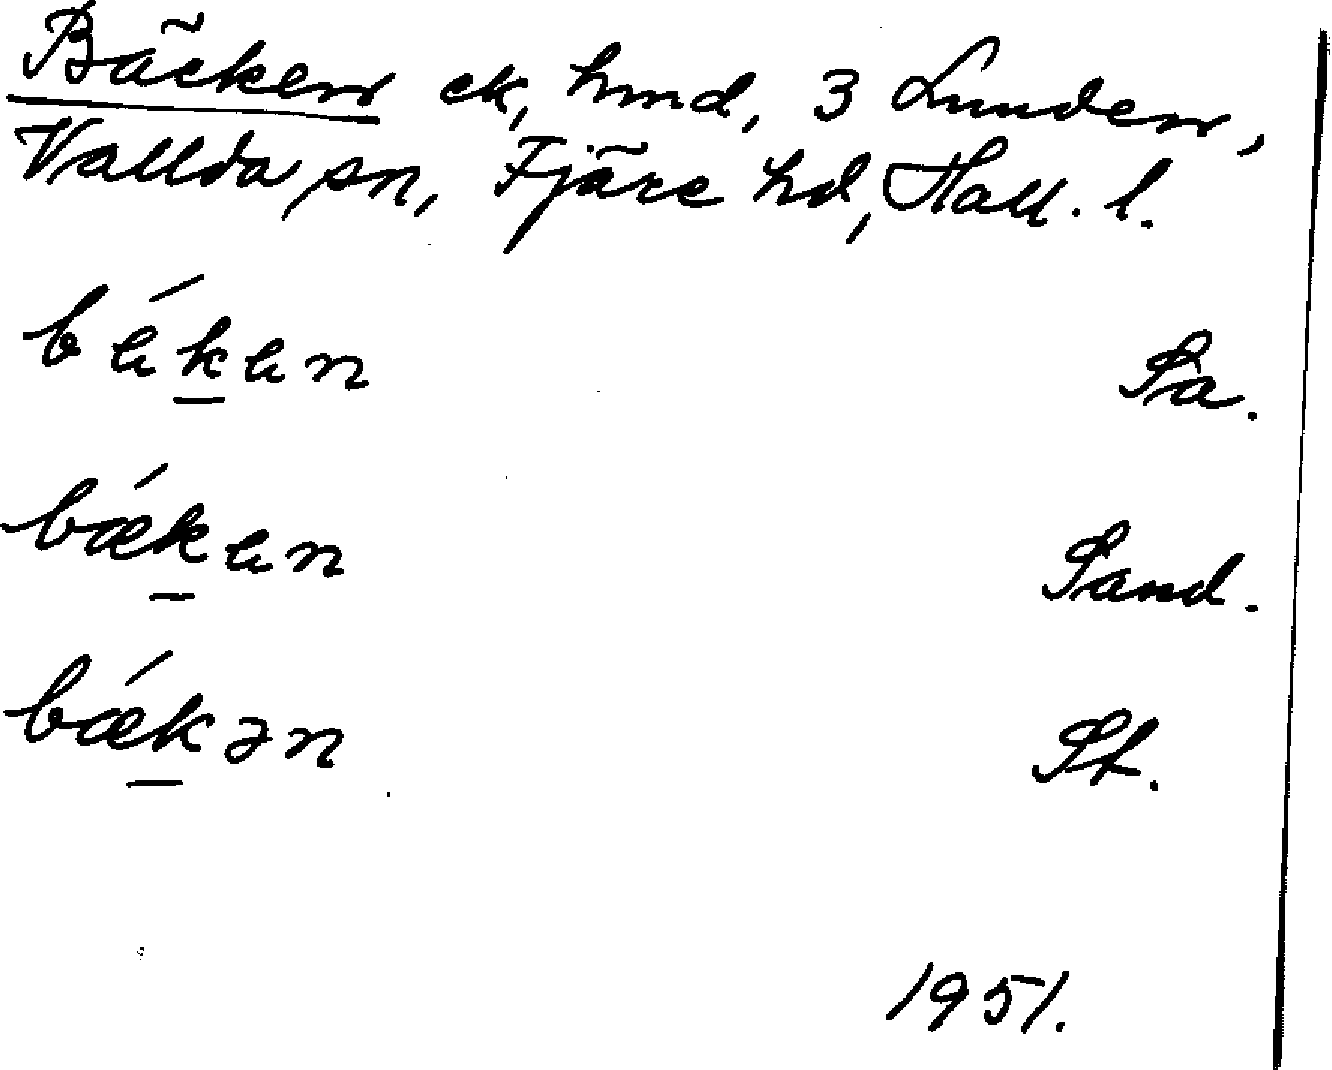 Bäcken ck, hmd, 3 Lunden,
Vallda sn, Fjäre hd, Hall. l.
békɐn Sa.
bǽkɐn Sand.
bǽkən St.
1951.